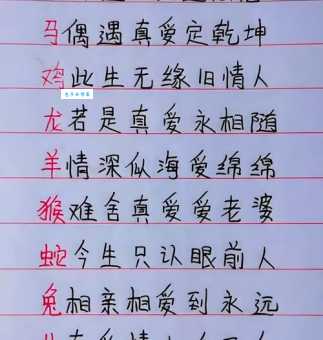 马偶遇真爱定乾坤
鸡此生无缘旧情人
龙若是真爱永相随
羊情深似海爱绵绵
猴难舍真爱爱老婆
蛇今生只认眼前人
兔相亲相爱到永远